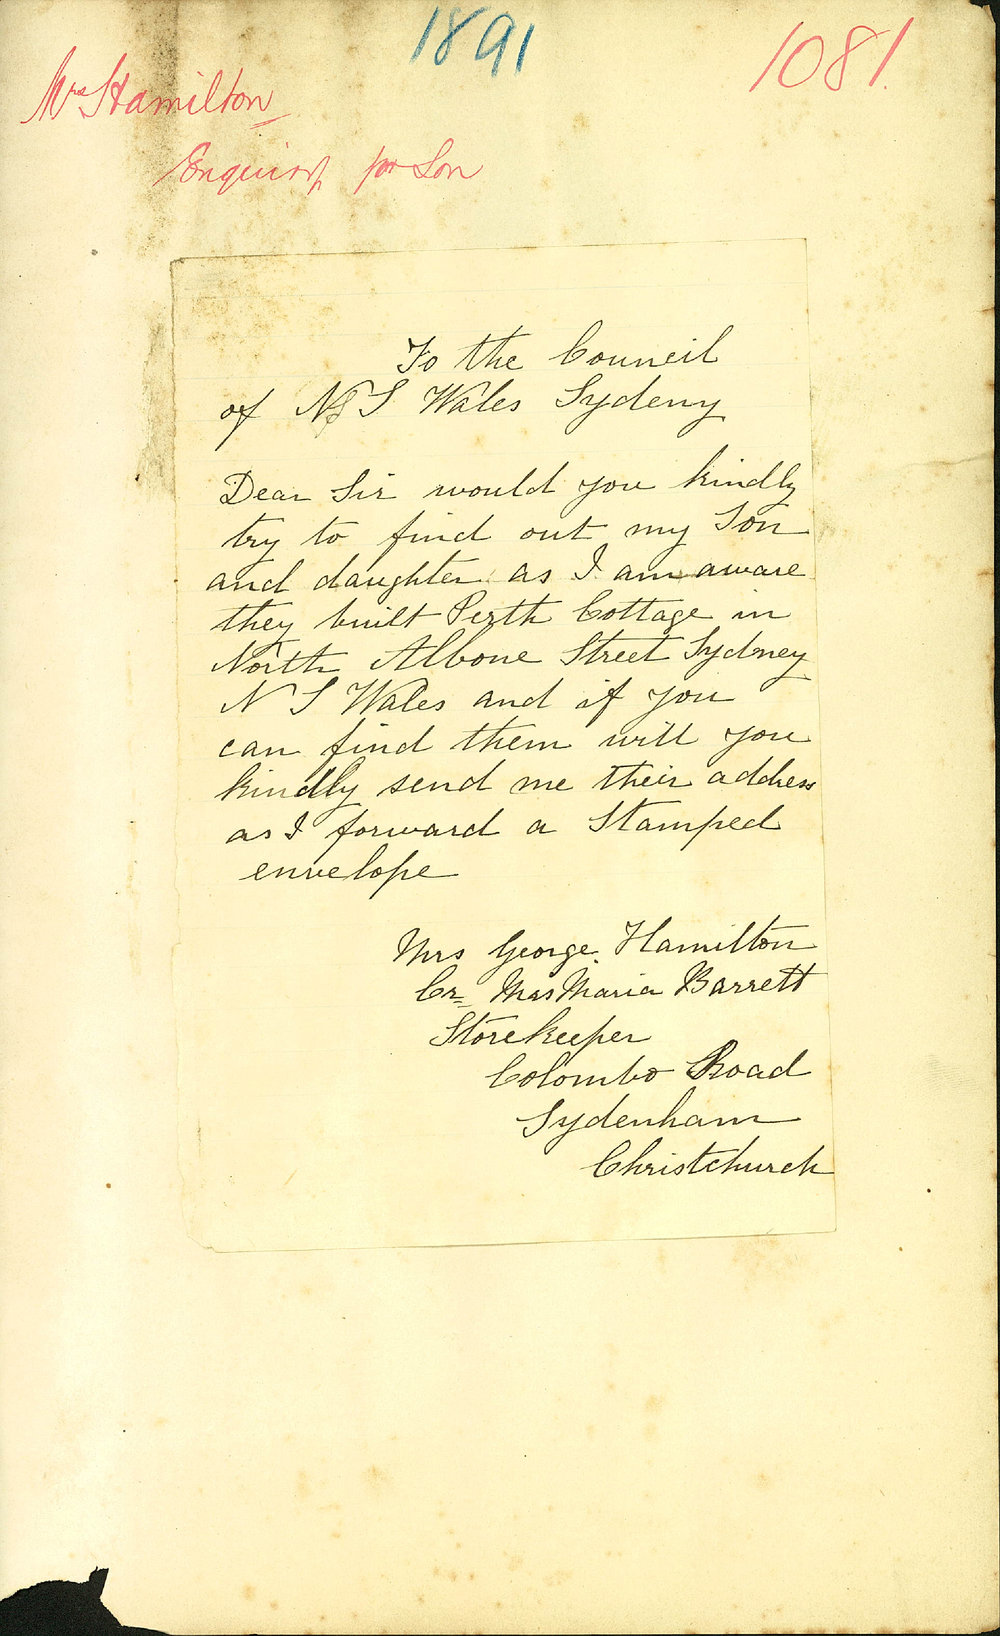 1891
1081.
Mrs Hamilton
Enquiry for Son
To the Council
of N S Wales Sydeny
Dear Sir would you kindly
try to find out my Son
and daughter as I am aware
they built Perth Cottage in
North Albone Street Sydney
N S Wales and if you
can find them will you
kindly send me their address
as I forward a Stamped
envelope
Mrs George Hamilton
Cr Mrs Maria Barrett
Storekeeper
Colombo Road
Sydenham
Christchurch